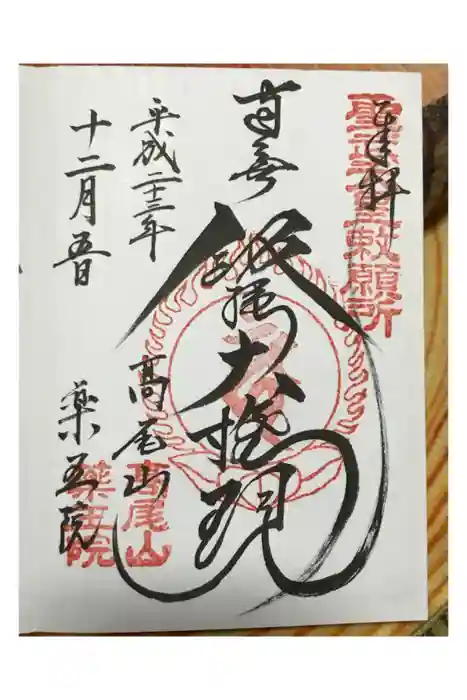 奉拝
聖武天皇勅願所
南無飯縄大権現
高尾山
高尾山
薬王院
薬王院
平成二十三年
十二月五日